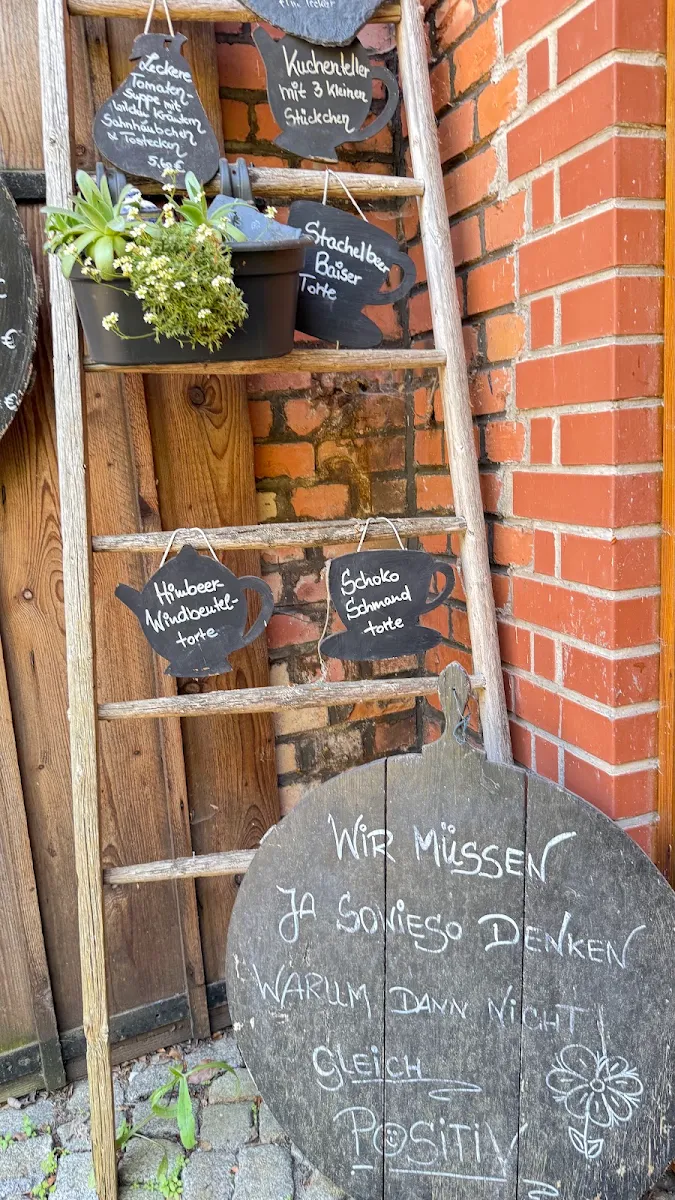 Leckere
Tomaten-
suppe mit
wilden Kräutern
Sahnhäubchen
& Toastecken
Kuchenteller
mit 3 kleinen
Stückchen
Stachelbeer
Baiser
Torte
€
€
Himbeer
Windbeutel-
torte
Schoko
Schmand
torte
WIR MÜSSEN
JA SOWIESO DENKEN
WARUM DANN NICHT
GLEICH
POSITIV